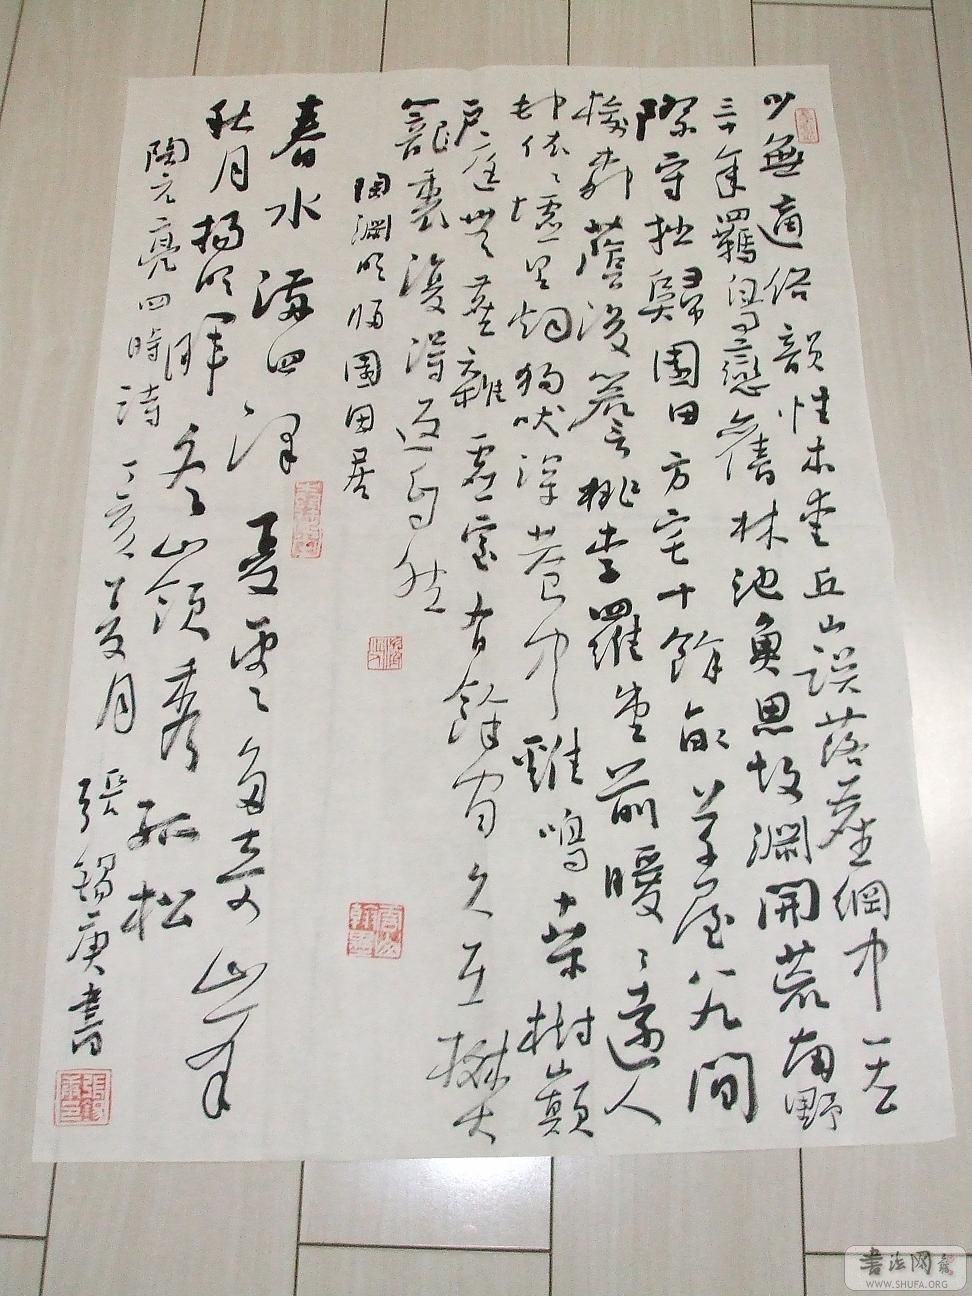 少無適俗韻性本愛丘山誤落塵網中一去
三十年羈鳥戀舊林池魚思故淵開荒南野
際守拙歸園田方宅十餘畝草屋八九間
榆柳蔭後簷桃李羅堂前暖々遠人
邨依々墟里烟狗吠深巷中雞鳴桑樹巔
戶庭無塵雜虛室有餘閒久在樊
籠裏復得返自然
陶淵明歸園田居
春水滿四澤夏雲多奇峰
秋月揚明暉冬嶺秀孤松
陶元亮四時詩丁亥月張錫庚書
書法网
WWW.SHUFA.ORG